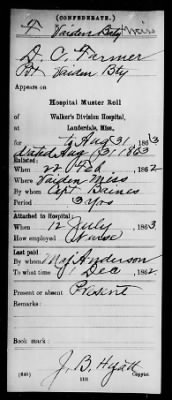 (CONFEDERATE.)
F Vaiden Bty Miss
D. C. Farmer
Pvt Vaiden Bty
Appears on
Hospital Muster Roll
of
Walker's Division Hospital,
at
Lauderdale, Miss.,
for to Aug 31, 1863
dated Aug 31 1863
Enlisted:
When 22 Feb, 1862
Where Vaiden Miss
By whom Capt Baines
Period 3 yrs
Attached to Hospital:
When 12 July, 1863.
How employed Nurse
Last paid
By whom Maj Anderson
To what time 1 Dec, 1862.
Present or absent Present
Remarks:
Book mark:
J. B. Hyatt
Copyist.